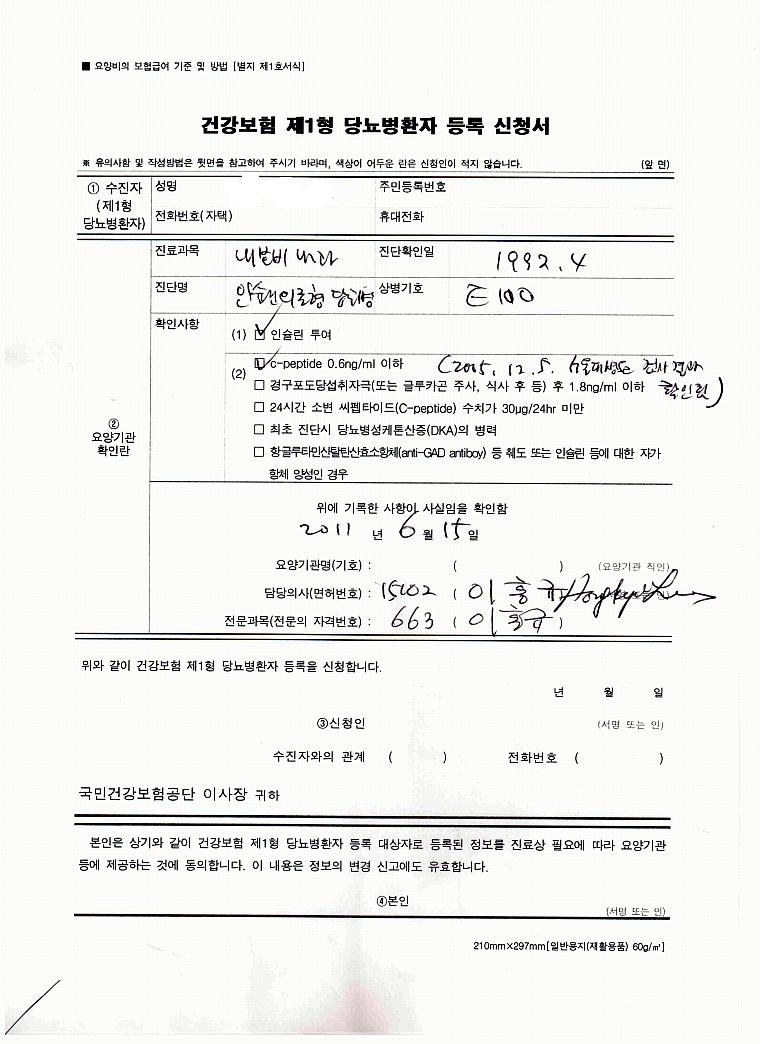 ■ 요양비의 보험급여 기준 및 방법 [별지 제1호서식]
건강보험 제1형 당뇨병환자 등록 신청서
※ 유의사항 및 작성방법은 뒷면을 참고하여 주시기 바라며, 색상이 어두운 란은 신청인이 적지 않습니다. (앞 면)
① 수진자 (제1형 당뇨병환자)
성명 주민등록번호
전화번호(자택) 휴대전화
② 요양기관 확인란
진료과목 내분비내과 진단확인일 1992.4
진단명 인슐린의존형 당뇨병 상병기호 E100
확인사항
(1) ☑ 인슐린 투여
(2) ☑ c-peptide 0.6ng/ml 이하 (2005. 12. 5. 서울대병원 검사 결과
□ 경구포도당섭취자극(또는 글루카곤 주사, 식사 후 등) 후 1.8ng/ml 이하 확인됨)
□ 24시간 소변 씨펩타이드(C-peptide) 수치가 30μg/24hr 미만
□ 최초 진단시 당뇨병성케톤산증(DKA)의 병력
□ 항글루타민산탈탄산효소항체(anti-GAD antiboy) 등 췌도 또는 인슐린 등에 대한 자가
항체 양성인 경우
위에 기록한 사항이 사실임을 확인함
2011 년 6 월 15 일
요양기관명(기호) : ( ) (요양기관 직인)
담당의사(면허번호) : 15102 ( 이홍규
전문과목(전문의 자격번호) : 663 ( 이홍규 )
위와 같이 건강보험 제1형 당뇨병환자 등록을 신청합니다.
년 월 일
③신청인 (서명 또는 인)
수진자와의 관계 ( ) 전화번호 ( )
국민건강보험공단 이사장 귀하
본인은 상기와 같이 건강보험 제1형 당뇨병환자 등록 대상자로 등록된 정보를 진료상 필요에 따라 요양기관
등에 제공하는 것에 동의합니다. 이 내용은 정보의 변경 신고에도 유효합니다.
④본인 (서명 또는 인)
210mm×297mm[일반용지(재활용품) 60g/㎡]